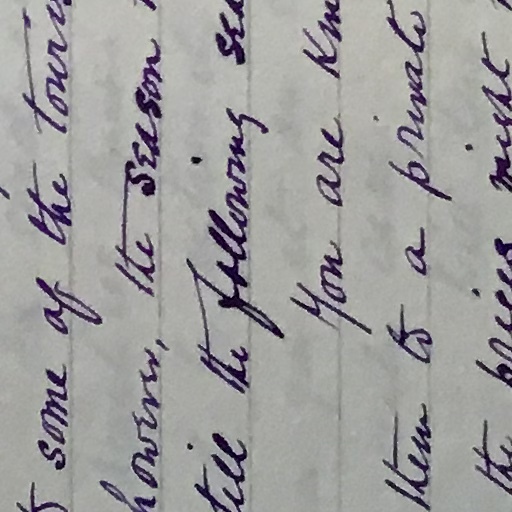 to some of the touris
however, the season
till the following sea
You are Kn
them to a private
the prices might